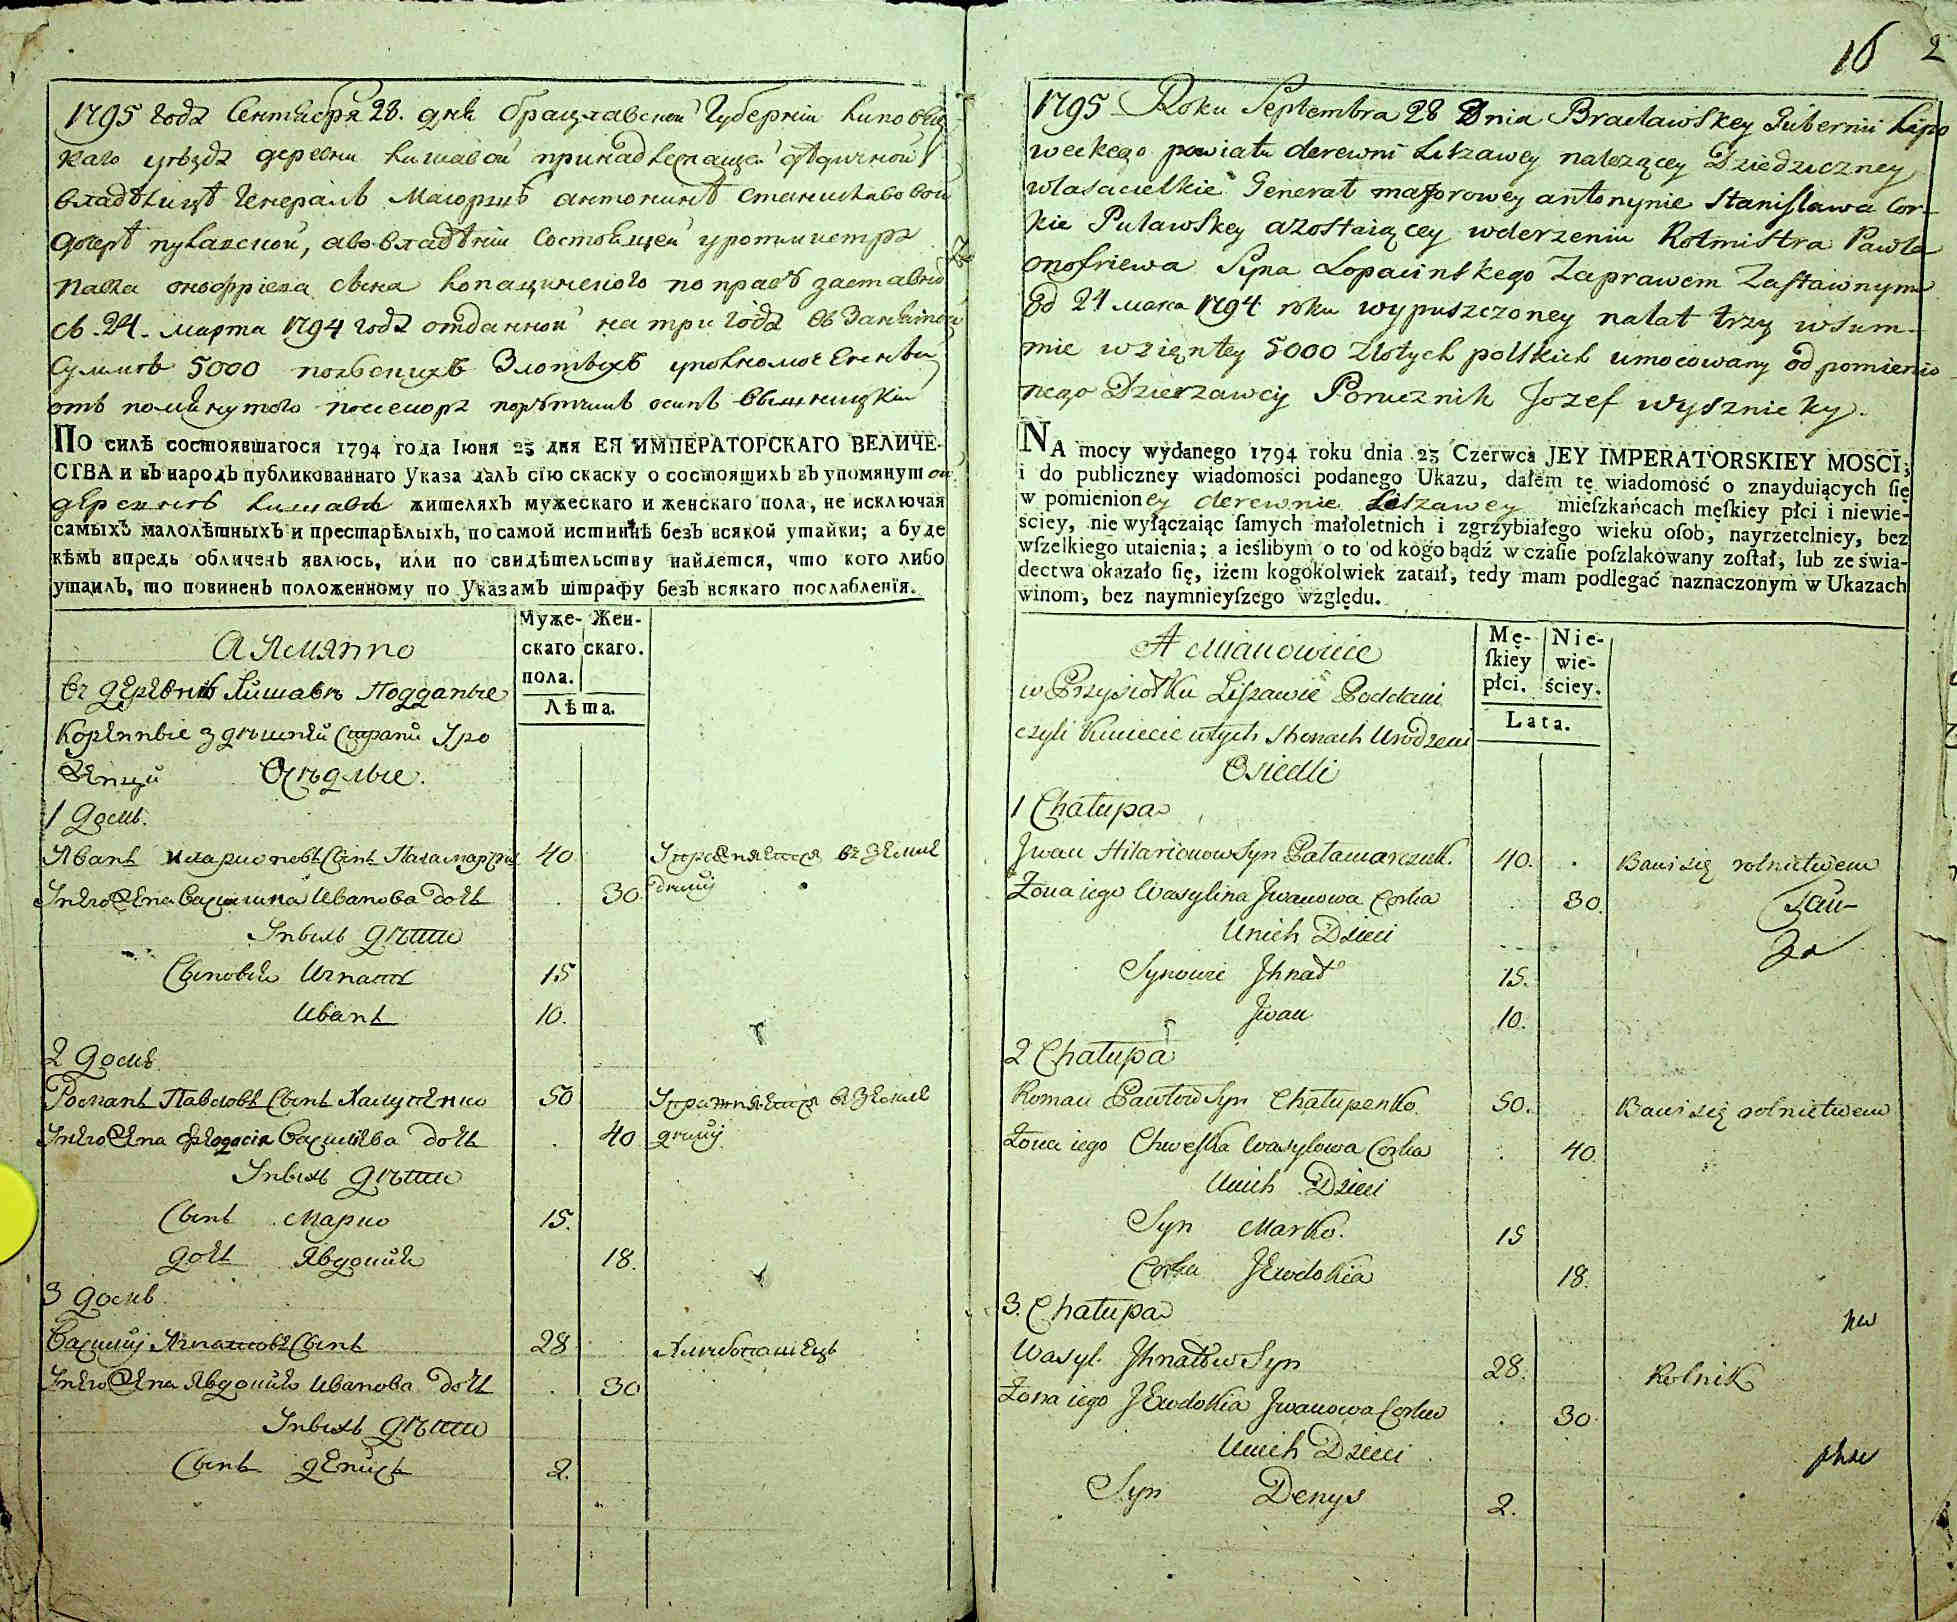 1795 года Сентября 28. дня Брацлавской Губернiи Липовец
каго уѣзда деревни Лишавой принадлежащей дѣдичной
владѣлицѣ Генералъ Маiоршѣ Антонинѣ Станиславовой
дочерѣ Пулавской, а во владѣнiи Состоящей у ротмистра
Павла Онофрiева сына Лопацинского по правѣ заставно
съ 24 марта 1794 года отданной на три года въ Занятой
Суммѣ 5000 польскихъ Злотыхъ уполномоченный
отъ помянутого поссесора порутчикъ осипъ Вышницкiй
ПО силѣ состоявшагося 1794 года Iюня 23 дня ЕЯ ИМПЕРАТОРСКАГО ВЕЛИЧЕ-
СТВА и въ народъ публикованнаго Указа далъ сiю скаску о состоящихъ въ упомянутой
деревнѣ Лишавѣ жителяхъ мужескаго и женскаго пола, не исключая
самыхъ малолѣтныхъ и престарѣлыхъ, по самой истиннѣ безъ всякой утайки; а буде
кѣмъ впредь обличенъ явлюсь, или по свидѣтельству найдется, что кого либо
утаилъ, то повиненъ положенному по Указамъ штрафу безъ всякаго послабленiя.
Муже- Жен-
скаго скаго.
пола.
Лѣта.
А Имянно
въ деревнѣ Лишавѣ Подданые
Коренные здешней Страни Уро
женци Осѣдлые.
1 Домъ.
Иванъ Иларионовъ Сынъ Паламарчукъ 40 Упражняется въ Земле
делии
У него Жена Василина Иванова дочь 30
У нихъ дѣти
Сыновья Игнатъ 15
Иванъ 10.
2 Домъ.
Романъ Павловъ Сынъ Халупенко 50 Упражняется въ Земле
делии
У него Жена Феодосiя Василева дочь 40
У нихъ дѣти
Сынъ Марко 15.
дочь Явдокия 18.
3 Домъ
Василий Игнатовъ Сынъ 28 Хлибопашецъ
У него Жена Явдокия Иванова дочь 30
У нихъ дѣти
Сынъ Денисъ 2.
16 2
1795 Roku Septembra 28 Dnia Bracławskey Gubernii Lipo
weckego powiatu derewni Liszawey nalezącey Dziedziczney
własacielkie Generał majorowey antonynie Stanisława Cor-
kie Puławskey azostaiącey wderzeniu Rotmistra Pawła
onofriewa Syna Łopacinskego Zaprawem Zastawnym
od 24 marca 1794 roku wypuszczoney nalat trzy wsum-
mie wzięntey 5000 złotych polskich umocowany od pomienio
nego Dzierzawcy Porucznik Jozef wysznicky.
NA mocy wydanego 1794 roku dnia 23 Czerwca JEY IMPERATORSKIEY MOSCI,
i do publiczney wiadomości podanego Ukazu, dałem tę wiadomość o znayduiących ſię
w pomienioney derewnie Liszawey mieſzkańcach męſkiey płci i niewie-
ściey, nie wyłączaiąc ſamych małoletnich i zgrzybiałego wieku oſob, nayrzetelniey, bez
wſzelkiego utaienia; a ieślibym o to od kogo bądź w czaſie poſzlakowany zoſtał, lub ze świa-
dectwa okazało ſię, iżem kogokolwiek zataił, tedy mam podlegać naznaczonym w Ukazach
winom, bez naymnieyſzego względu.
Mę- Nie-
ſkiey wie-
płci. ściey.
Lata.
A mianowicie
w Przysiołku Liszawie Poddani
czyli Kmiecie wtych Stronach Urodzeni
Osiedli
1 Chałupa
Jwan Hilarionow Syn Pałamarczuk. 40. Bawi się rolnictwem
Żona iego Wasylina Jwanowa Corka 30.
Unich Dzieci
Synowie Jhnat 15.
Jwan 10.
2 Chałupa
Roman Pawłow Syn Chałupenko 50. Bawi się rolnictwem
Żona iego Chweska Wasylowa Corka 40.
Unich Dzieci
Syn Marko. 15
Corka JEwdokia 18.
3. Chałupa
Wasyl Jhnatow Syn 28. Rolnik
Żona iego JEwdokia Jwanowa Corka 30.
Unich Dzieci
Syn Denys 2.